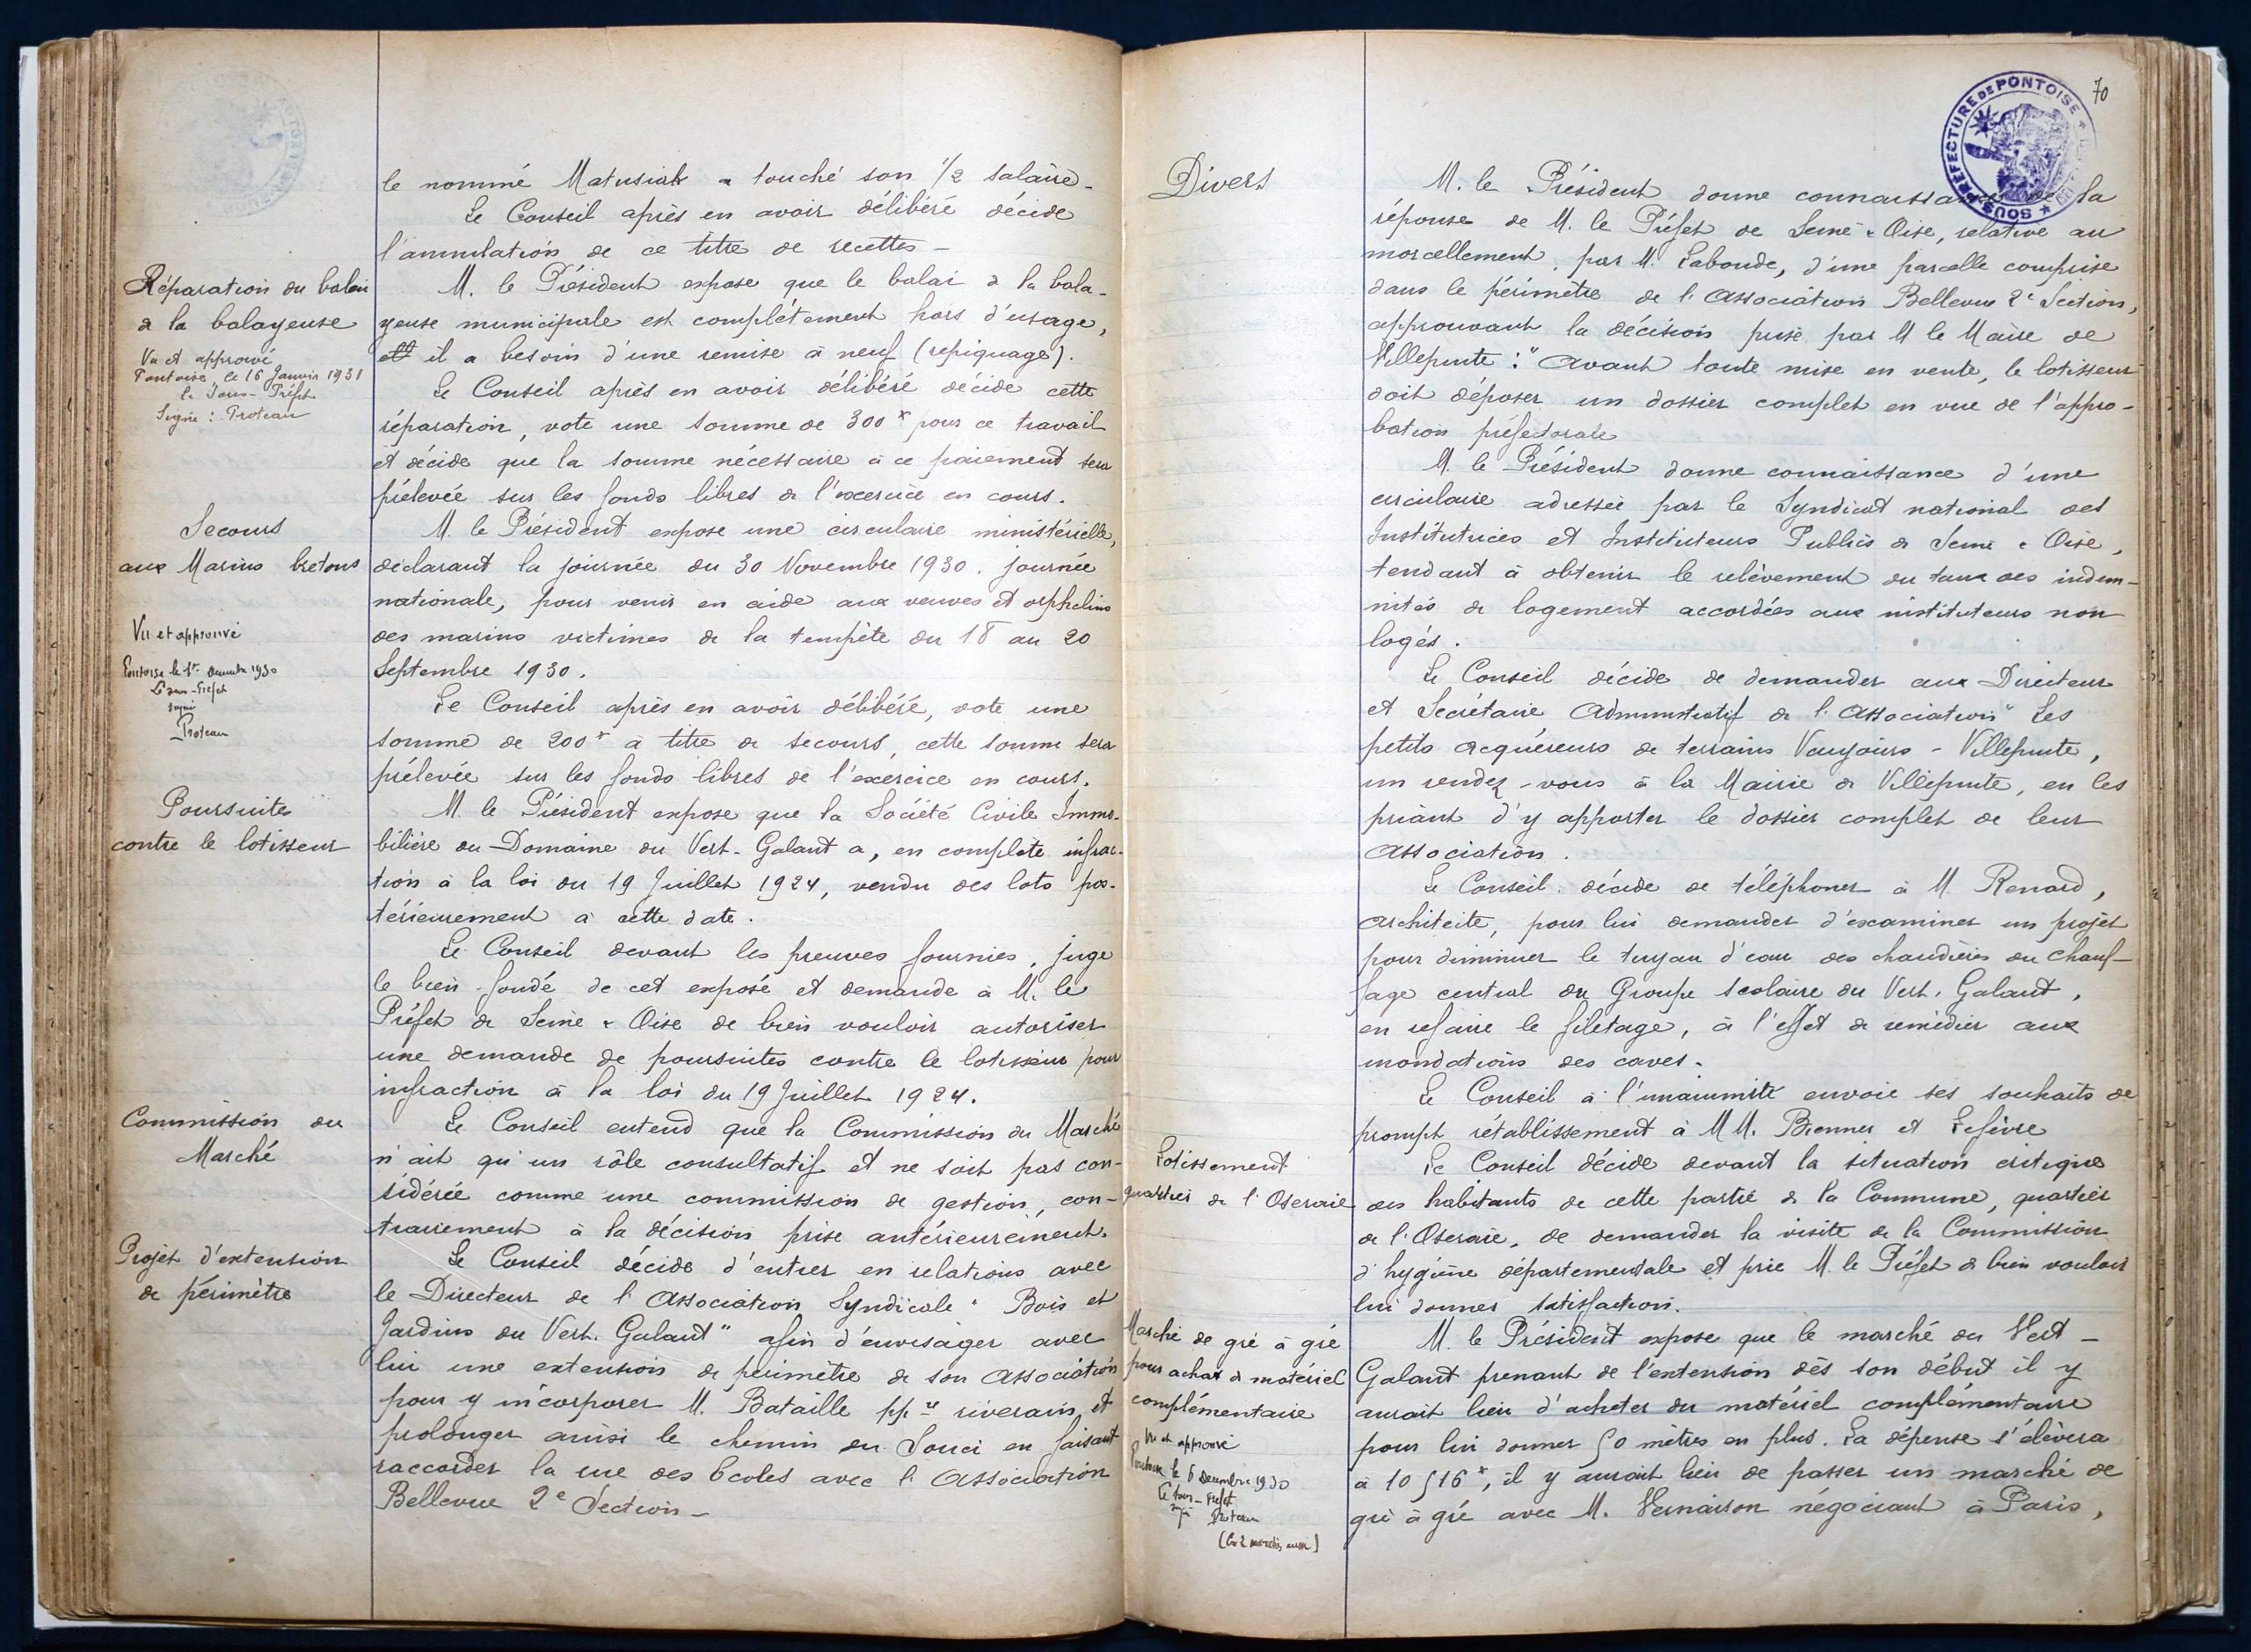 le nommé Matusiak a touché son 1/2 salaire -
Le Conseil après en avoir délibéré décide
l'annulation de ce titre de recettes -
Réparation du balai
à la balayeuse
Vu et approuvé
Pontoise, le 16 Janvier 1931
Le Sous-Préfet
Signé : Proteau
M. le Président expose que le balai de la bala-
yeuse municipale est complètement hors d'usage,
il a besoin d'une remise à neuf (repiquage).
Le Conseil après en avoir délibéré décide cette
réparation, vote une somme de 300 f pour ce travail
et décide que la somme nécessaire à ce paiement sera
prélevée sur les fonds libres de l'exercice en cours.
Secours
aux Marins bretons
Vu et approuvé
Pontoise le 1er Décembre 1930
Le Sous-Préfet
signé
Proteau
M. le Président expose une circulaire ministérielle,
déclarant la journée du 30 Novembre 1930. journée
nationale, pour venir en aide aux veuves et orphelins
des marins victimes de la tempête du 18 au 20
Septembre 1930.
Le Conseil après en avoir délibéré, vote une
somme de 200 f à titre de secours, cette somme sera
prélevée sur les fonds libres de l'exercice en cours.
Poursuites
contre le lotisseur
M. le Président expose que la Société Civile Immo-
bilière du Domaine du Vert-Galant a, en complète infrac-
tion à la loi du 19 Juillet 1924, vendu des lots pos-
térieurement à cette date.
Le Conseil devant les preuves fournies, juge
le bien-fondé de cet exposé et demande à M. le
Préfet de Seine & Oise de bien vouloir autoriser
une demande de poursuites contre le lotisseur pour
infraction à la loi du 19 Juillet 1924.
Commission du
Marché
Le Conseil entend que la Commission du Marché
n'ait qu'un rôle consultatif et ne soit pas con-
sidérée comme une commission de gestion, con-
trairement à la décision prise antérieurement.
Projet d'extension
de périmètre
Le Conseil décide d'entrer en relations avec
le Directeur de l'Association Syndicale " Bois et
Jardins du Vert-Galant" afin d'envisager avec
lui une extension de périmètre de son Association
pour y incorporer M. Bataille pp re riverain, et
prolonger ainsi le chemin du Souci en faisant
raccorder la rue des Ecoles avec l'Association
Bellevue 2e Section -
70
SOUS-PRÉFECTURE DE PONTOISE
Divers
M. le Président donne connaissance de la
réponse de M. le Préfet de Seine & Oise, relative au
morcellement, par M. Labonde, d'une parcelle comprise
dans le périmètre de l'Association Bellevue 2e Section,
approuvant la décision prise par M le Maire de
Villepinte : " Avant toute mise en vente, le lotisseur
doit déposer un dossier complet en vue de l'appro-
bation préfectorale
M. le Président donne connaissance d'une
circulaire adressée par le Syndicat national des
Institutrices et Instituteurs Publics de Seine & Oise,
tendant à obtenir le relèvement du taux des indem-
nités de logement accordées aux instituteurs non
logés.
Le Conseil décide de demander aux Directeur
et Secrétaire Administratif de l'Association " Les
petits acquéreurs de terrains Vaujours - Villepinte,
un rendez-vous à la Mairie de Villepinte, en les
priant d'y apporter le dossier complet de leur
Association.
Le Conseil décide de téléphoner à M. Renard,
architecte, pour lui demander d'examiner un projet
pour diminuer le tuyau d'eau des chaudières du chauf-
fage central du Groupe Scolaire du Vert-Galant,
en refaire le filetage, à l'effet de remédier aux
inondations des caves.
Le Conseil à l'unanimité envoie ses souhaits de
prompt rétablissement à MM. Bienner et Lefèvre
Lotissement
quartier de l'Oseraie
Le Conseil décide devant la situation critique
des habitants de cette partie de la Commune, quartier
de l'Oseraie, de demander la visite de la Commission
d'hygiène départementale et prie M. le Préfet de bien vouloir
lui donner satisfaction.
Marché de gré à gré
pour achat de matériel
complémentaire
Vu et approuvé
Pontoise le 6 Décembre 1930
Le Sous-Préfet
signé Proteau
(les 2 marchés aussi)
M. le Président expose que le marché du Vert-
Galant prenant de l'extension dès son début il y
aurait lieu d'acheter du matériel complémentaire
pour lui donner 50 mètres en plus. La dépense s'élèvera
à 10 516 f, il y aurait lieu de passer un marché de
gré à gré avec M. Vernaison négociant à Paris,